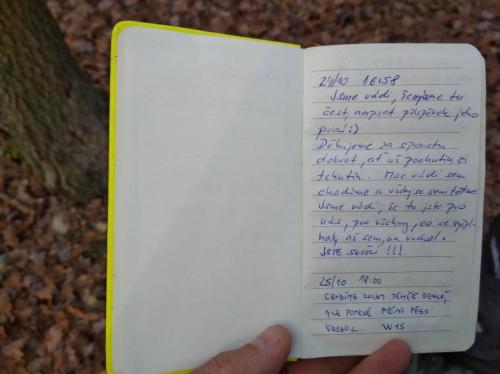 24/10 16:58
Jsme rádi, že máme tu
čest, napsat příspěvek jako
první :)
Děkujeme za spoustu
dobrot, ať už pochutin či
tekutin. Moc rádi sem
chodíme a vždy se sem těšíme
Jsme rádi, že tu jste pro
nás, pro všechny, co se vyšpl-
haly až sem, na vrchol.
JSTE SKVĚLÍ !!!
25/10 18:00
CHODÍME KOLEM TÉMĚŘ DENNĚ,
ALE POPRVÉ PĚŠMO PŘES
VRCHOL W15